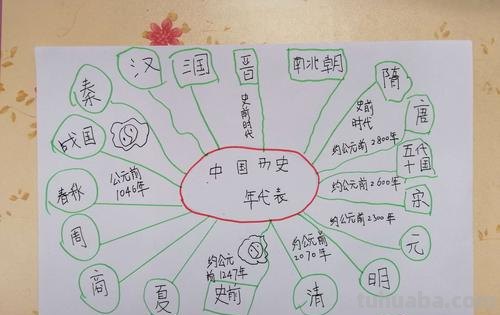 汉
三国
晋
南北朝
隋
唐
五代
十国
宋
元
明
清
史前
夏
商
周
春秋
战国
秦
史前时代
史前
时代
约公元前2800年
约公元前2600年
约公元前2300年
约公元前
2070年
约公元
前1247年
公元前
1046年
中国历史
年代表
tuhuaba.com